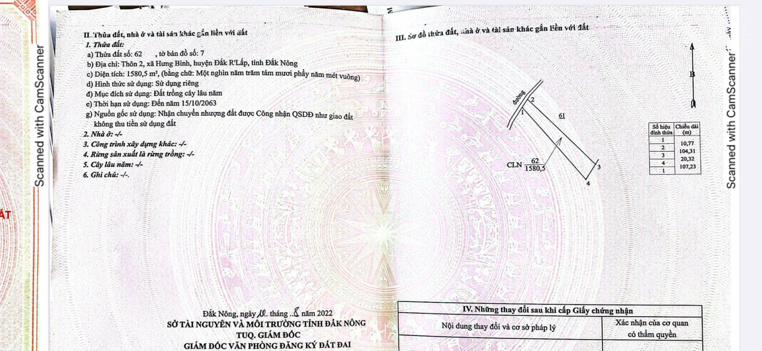 II. Thửa đất, nhà ở và tài sản khác gắn liền với đất
1. Thửa đất:
a) Thửa đất số: 62 , tờ bản đồ số: 7
b) Địa chỉ: Thôn 2, xã Hưng Bình, huyện Đắk R'Lấp, tỉnh Đắk Nông
c) Diện tích: 1580,5 m², (bằng chữ: Một nghìn năm trăm tám mươi phẩy năm mét vuông)
d) Hình thức sử dụng: Sử dụng riêng
đ) Mục đích sử dụng: Đất trồng cây lâu năm
e) Thời hạn sử dụng: Đến năm 15/10/2063
g) Nguồn gốc sử dụng: Nhận chuyển nhượng đất được Công nhận QSDĐ như giao đất
không thu tiền sử dụng đất
2. Nhà ở: -/-
3. Công trình xây dựng khác: -/-
4. Rừng sản xuất là rừng trồng: -/-
5. Cây lâu năm: -/-
6. Ghi chú: -/-.
Đắk Nông, ngày tháng năm 2022
SỞ TÀI NGUYÊN VÀ MÔI TRƯỜNG TỈNH ĐẮK NÔNG
TUQ. GIÁM ĐỐC
GIÁM ĐỐC VĂN PHÒNG ĐĂNG KÝ ĐẤT ĐAI
III. Sơ đồ thửa đất, nhà ở và tài sản khác gắn liền với đất
B
đường
1
2
61
CLN 62
1580,5
3
4
Số hiệu đỉnh thửa Chiều dài (m)
1
10,77
2
104,31
3
20,32
4
107,23
1
IV. Những thay đổi sau khi cấp Giấy chứng nhận
Nội dung thay đổi và cơ sở pháp lý
Xác nhận của cơ quan
có thẩm quyền
Scanned with CamScanner
Scanned with CamScanner
ẤT